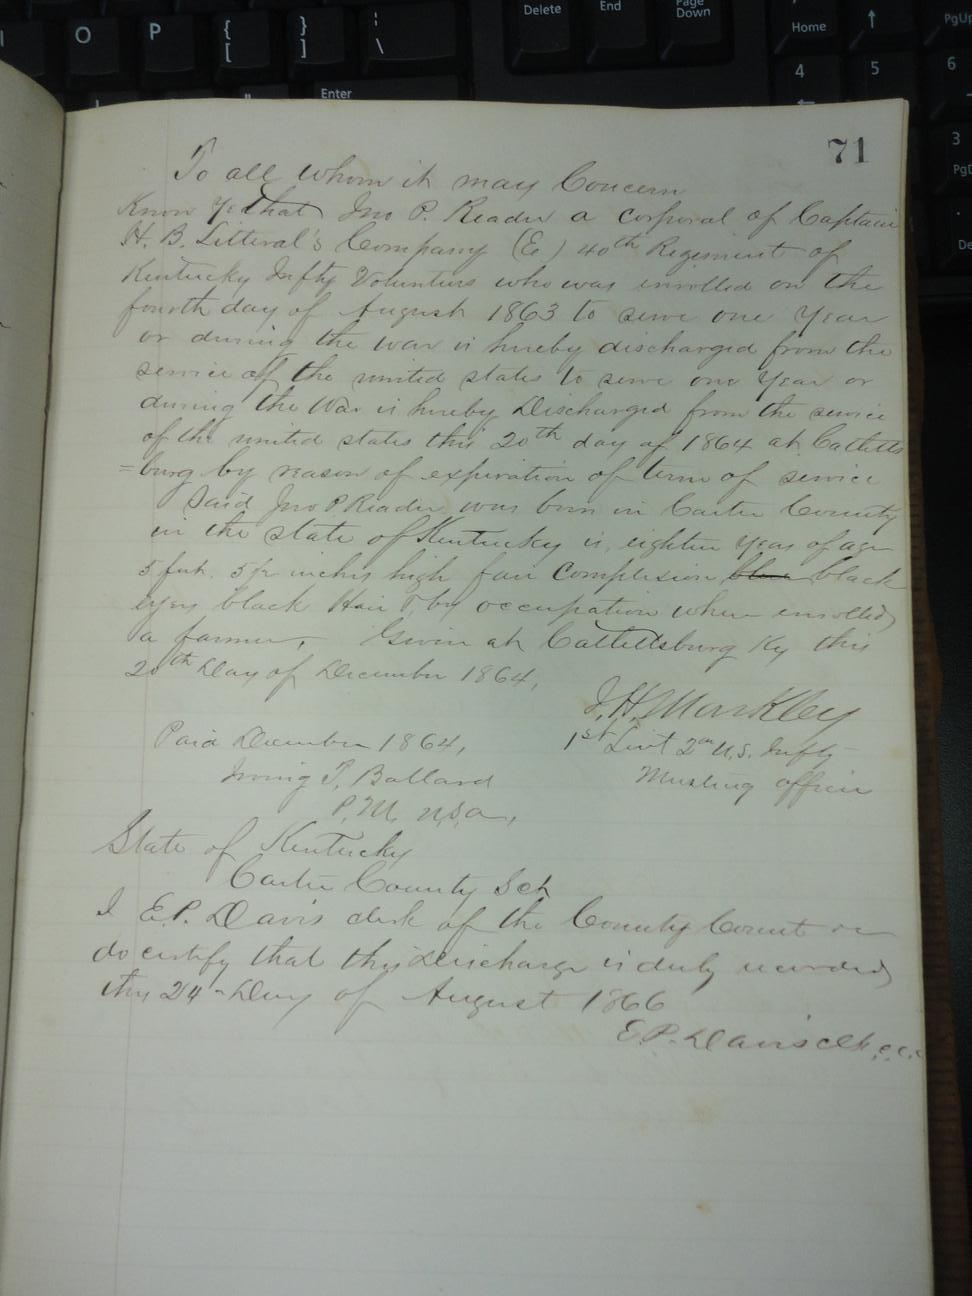 Delete
End
Page
Down
Home
PgUp
O
P
{
[
}
]
¦
\
4
5
6
"
Enter
3
71
To all whom it may Concern
Know Ye that Jno P. Reader a corporal of Captain
H. B. Litteral's Company (E) 40th Regiment of
Kentucky Infty Volunteers who was enrolled on the
fourth day of August 1863 to serve one Year
or during the war is hereby discharged from the
service of the united states to serve one Year or
during the War is hereby Discharged from the service
of the united states this 20th day of 1864 at Catletts
=burg by reason of expiration of term of service
Said Jno P Reader was born in Carter County
in the state of Kentucky is eighteen Years of age
5 feet. 5½ inches high fair Complexion blue black
eyes black Hair & by occupation when enrolled
a farmer. Given at Catlettsburg Ky this
20th Day of December 1864,
J. H. Markley
Paid December 1864,
1st Lieut 2nd U.S. Infty
Irving T. Ballard
Mustering officer
P.M. U.S.A.,
State of Kentucky
Carter County Sct
I E.P. Davis clerk of the County Court
do certify that this Discharge is duly recorded
this 24 Day of August 1866
E.P. Davis clk. c.c.c.